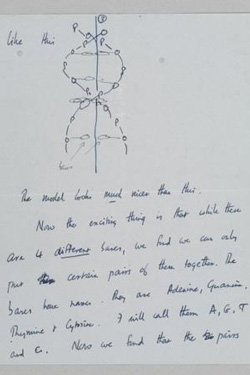 like this
P
P
P
The model looks much nicer than this.
Now the exciting thing is that while there
are 4 different bases, we find we can only
put certain pairs of them together. The
bases have names. They are Adenine, Guanine,
Thymine & Cytosine. I will call them A, G, T
and C. Now we find that the pairs